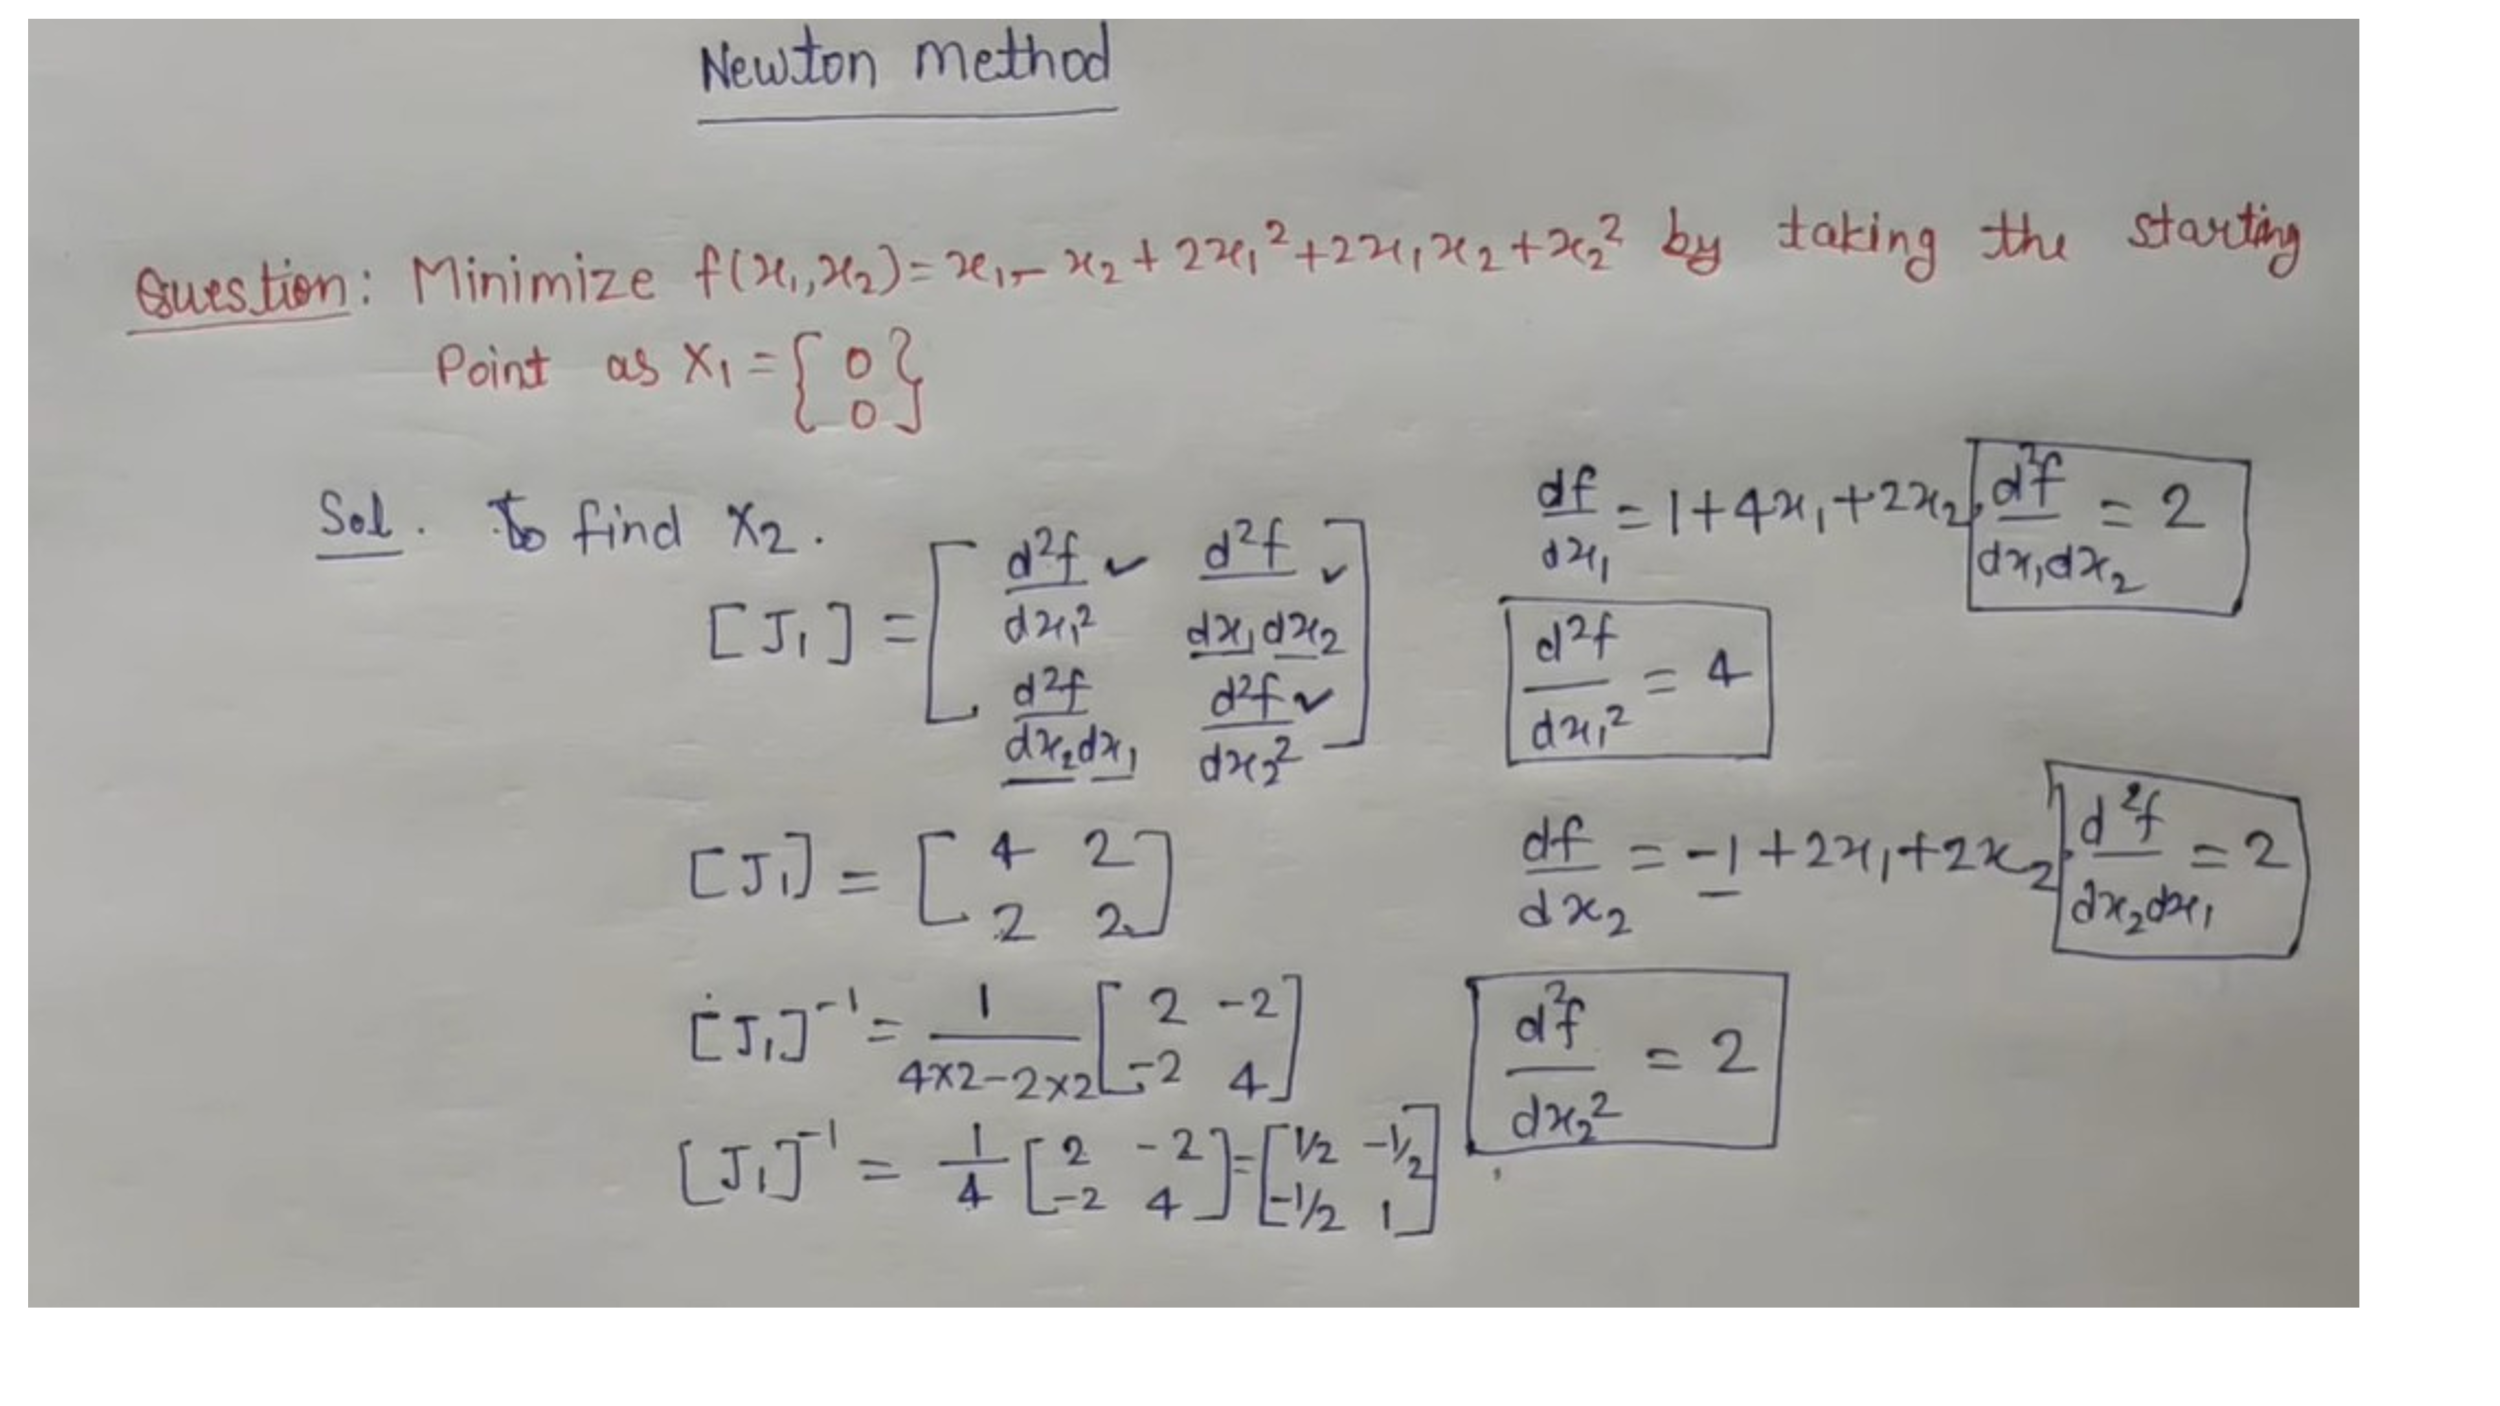 Newton method
Question: Minimize f(x₁,x₂)=x₁-x₂+2x₁²+2x₁x₂+x₂² by taking the starting
Point as X₁={0
0}
Sol. To find X₂.
[J₁] = [d²f/dx₁² ✓ d²f/dx₁dx₂ ✓
d²f/dx₂dx₁ d²f/dx₂² ✓]
[J₁] = [4 2
2 2]
[J₁]⁻¹ = 1/(4×2-2×2) [2 -2
-2 4]
[J₁]⁻¹ = 1/4 [2 -2
-2 4] = [1/2 -1/2
-1/2 1]
df/dx₁ = 1+4x₁+2x₂, d²f/dx₁dx₂ = 2
d²f/dx₁² = 4
df/dx₂ = -1+2x₁+2x₂, d²f/dx₂dx₁ = 2
d²f/dx₂² = 2